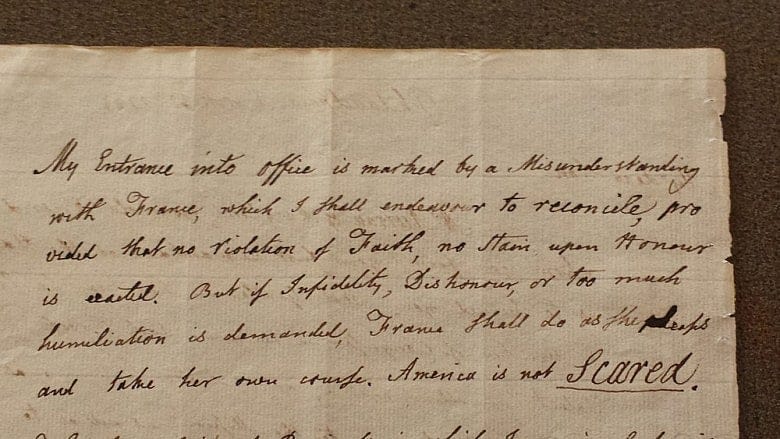 My Entrance into office is marked by a Misunderstanding
with France, which I shall endeavour to reconcile, pro
vided that no Violation of Faith, no Stain upon Honour
is exacted. But if Infidelity, Dishonour, or too much
humiliation is demanded, France shall do as she
and take her own course. America is not Scared.